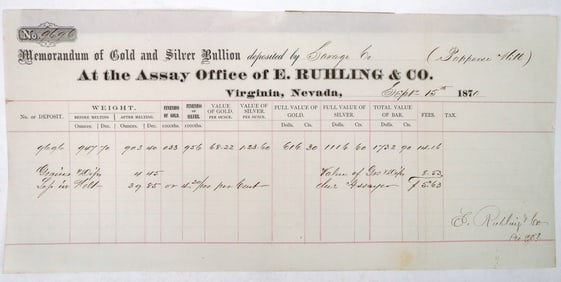 No. 9696
Memorandum of Gold and Silver Bullion deposited by Savage Co (
At the Assay Office of E. RUHLING & CO.
Virginia, Nevada, Sept 15th 187
No. OF DEPOSIT. WEIGHT. FINENESS OF GOLD. FINENESS OF SILVER. VALUE OF GOLD PER OUNCE. VALUE OF SILVER. PER OUNCE. FULL VALUE OF GOLD. FULL VALUE OF SILVER. TOTAL VALUE OF BAR. FEES. TAX.
BEFORE MELTING AFTER MELTING
Ounces. Dec. Ounces. Dec. Dolls. Cts. Dolls. Cts. Dolls. Cts.
9696 947 70 902 40 033 956 68.22 123.60 616 30 1116 60 1732 90 14.16
4 45 Value of 8.53
Loss in Melt 39 85 or per Cent Due Assayer $5.63
E. Ruhling & Co